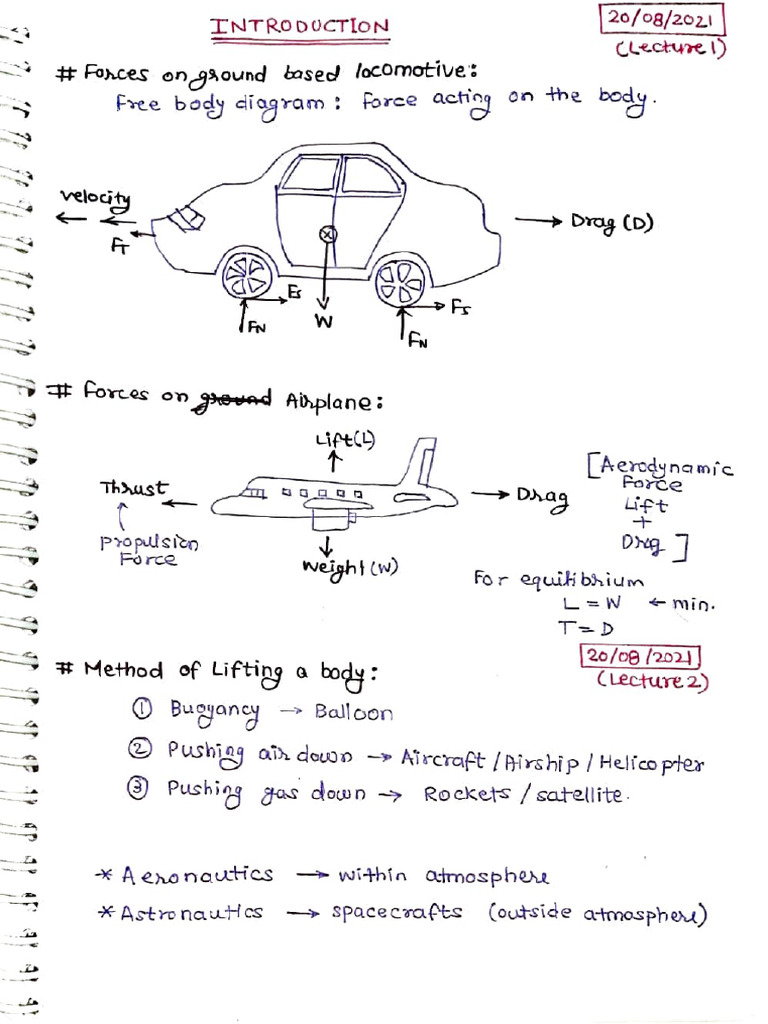 INTRODUCTION
20/08/2021
(Lecture 1)
# Forces on ground based locomotive:
Free body diagram: Force acting on the body.
velocity
FT
Drag (D)
Fs
FN
W
Fs
FN
# Forces on ground Airplane:
Lift(L)
Thrust
Drag
propulsion
Force
Weight (W)
[Aerodynamic
Force
Lift
+
Drag]
For equilibrium
L = W ← min.
T = D
20/08/2021
(Lecture 2)
# Method of Lifting a body:
① Buoyancy → Balloon
② Pushing air down → Aircraft / Airship / Helicopter
③ Pushing gas down → Rockets / satellite.
* Aeronautics → within atmosphere
* Astronautics → spacecrafts (outside atmosphere)